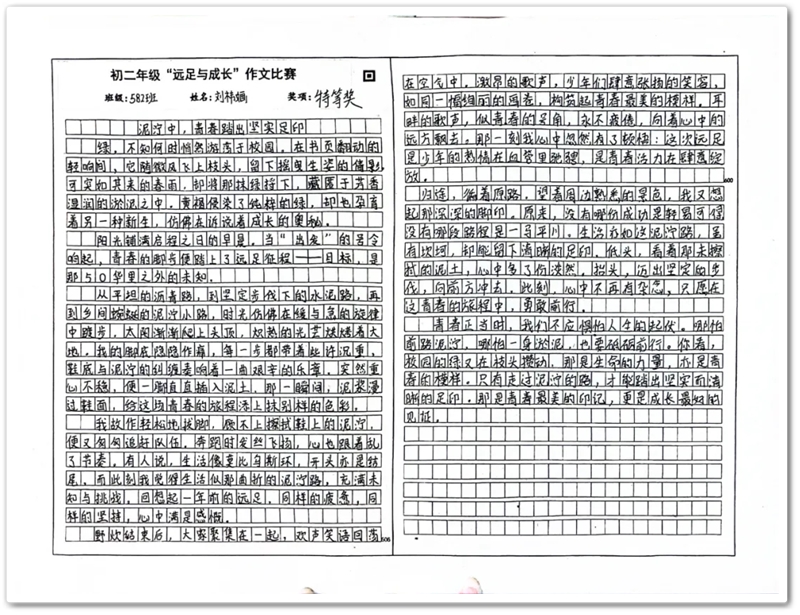 初二年级“远足与成长”作文比赛
班级：582班 姓名：刘祎娴 奖项：特等奖
泥泞中，青春踏出坚实足印
绿，不知何时悄然游离于校园。在书页翻动的
轻响间，它随微风飞上枝头，留下摇曳生姿的倩影。
可突如其来的春雨，却将那抹绿拧下，藏匿于芳香
湿润的淤泥之中，黄褐侵染了纯粹的绿，却也孕育
着另一种新生，仿佛在诉说着成长的奥秘。
阳光铺满启程之日的早晨。当“出发”的号令
响起，青春的脚步便踏上了远足征程——目标，是
那50华里之外的未知。
从平坦的沥青路，到坚定步伐下的水泥路，再
到乡间蜿蜒的泥泞小路，时光仿佛在绿与色的旋律
中踱步，太阳渐渐爬上头顶，炽热的光芒烘烤着大
地，我的脚底隐隐作痛，每一步都带着些许沉重，
鞋底与泥泞的纠缠奏响着一曲艰辛的乐章。突然重
心不稳，便一脚直直插入泥土，那一瞬间，泥浆漫
过鞋面，给这场青春的旅程添上抹别样的色彩。
我故作轻松地拔脚，顾不上擦拭鞋上的泥泞，
便又匆匆追赶队伍，奔跑时发丝飞扬，心也跟着乱
了节奏。有人说，生活像莫比乌斯环，开头亦是结
尾，而此刻我觉得生活似那曲折的泥泞路，充满未
知与挑战，回想起一年前的远足，同样的疲惫，同
样的坚持，心中满是感慨。
野炊结束后，大家聚集在一起，欢声笑语回荡
在空气中。激昂的歌声，少年们肆意张扬的笑容，
如同一幅绚丽的画卷，构筑起青春最美的模样。耳
畔的歌声，似青春的号角，永不疲倦，向着心中的
远方飘去。那一刻我心中忽然有了顿悟：这次远足
是少年的热情在血管里驰骋，是青春活力在肆意绽
放。
归途，循着原路，望着周边熟悉的景色，我又想
起那深深的脚印。原来，没有哪份成功是轻易可得
没有哪段路程是一马平川。生活亦如这泥泞路，虽
有坎坷，却能留下清晰的足印。低头，看着那未擦
拭的泥土，心中多了份淡然，抬头，迈出坚定的步
伐，向前方冲去。此刻，心中不再有杂念，只愿在
这青春的旅程中，勇敢前行。
青春正当时，我们不应惧怕人生的起伏。哪怕
前路泥泞，哪怕一身淤泥，也要砥砺前行。你看，
校园的绿又在枝头攒动，那是生命的力量，亦是青
春的模样。只有走过泥泞的路，才能踏出坚实而清
晰的足印。那是青春最美的印记，更是成长最好的
见证。